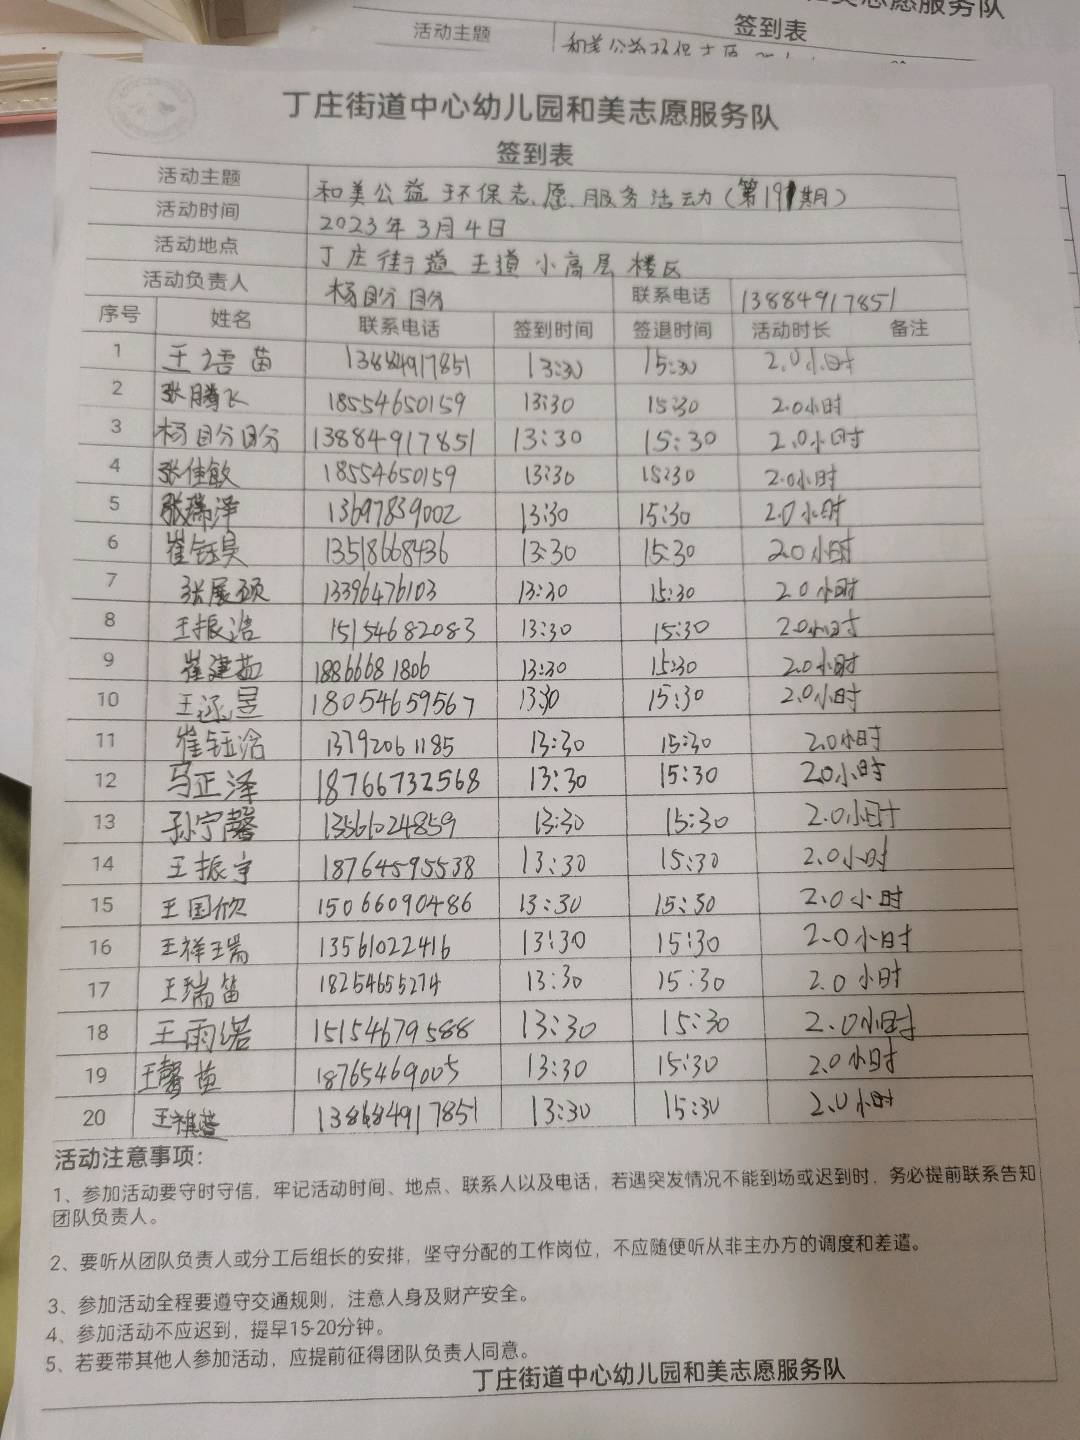 志愿服务队
签到表
活动主题
丁庄街道中心幼儿园和美志愿服务队
签到表
活动主题 和美公益环保志愿服务活动(第191期)
活动时间 2023年3月4日
活动地点 丁庄街道王道小高层楼区
活动负责人 杨盼盼 联系电话 13884917851
序号 姓名 联系电话 签到时间 签退时间 活动时长 备注
1 王语苗 13884917851 13:30 15:30 2.0小时
2 张腾飞 18554650159 13:30 15:30 2.0小时
3 杨盼盼 13884917851 13:30 15:30 2.0小时
4 张佳敏 18554650159 13:30 15:30 2.0小时
5 张瑞泽 13697839002 13:30 15:30 2.0小时
6 崔钰昊 13518668436 13:30 15:30 2.0小时
7 张展硕 13396476103 13:30 15:30 2.0小时
8 王振浩 15154682083 13:30 15:30 2.0小时
9 崔建茹 18866681806 13:30 15:30 2.0小时
10 18054659567 13:30 15:30 2.0小时
11 崔钰涵 13792061185 13:30 15:30 2.0小时
12 马正泽 18766732568 13:30 15:30 2.0小时
13 孙宁馨 13561024859 13:30 15:30 2.0小时
14 王振宇 18764595538 13:30 15:30 2.0小时
15 王国欣 15066090486 13:30 15:30 2.0小时
16 王祥瑞 13561022416 13:30 15:30 2.0小时
17 王瑞笛 18254655274 13:30 15:30 2.0小时
18 王雨诺 15154679588 13:30 15:30 2.0小时
19 王馨苗 18765469005 13:30 15:30 2.0小时
20 王祺萱 13884917851 13:30 15:30 2.0小时
活动注意事项:
1、参加活动要守时守信,牢记活动时间、地点、联系人以及电话,若遇突发情况不能到场或迟到时,务必提前联系告知
团队负责人。
2、要听从团队负责人或分工后组长的安排,坚守分配的工作岗位,不应随便听从非主办方的调度和差遣。
3、参加活动全程要遵守交通规则,注意人身及财产安全。
4、参加活动不应迟到,提早15-20分钟。
5、若要带其他人参加活动,应提前征得团队负责人同意。
丁庄街道中心幼儿园和美志愿服务队